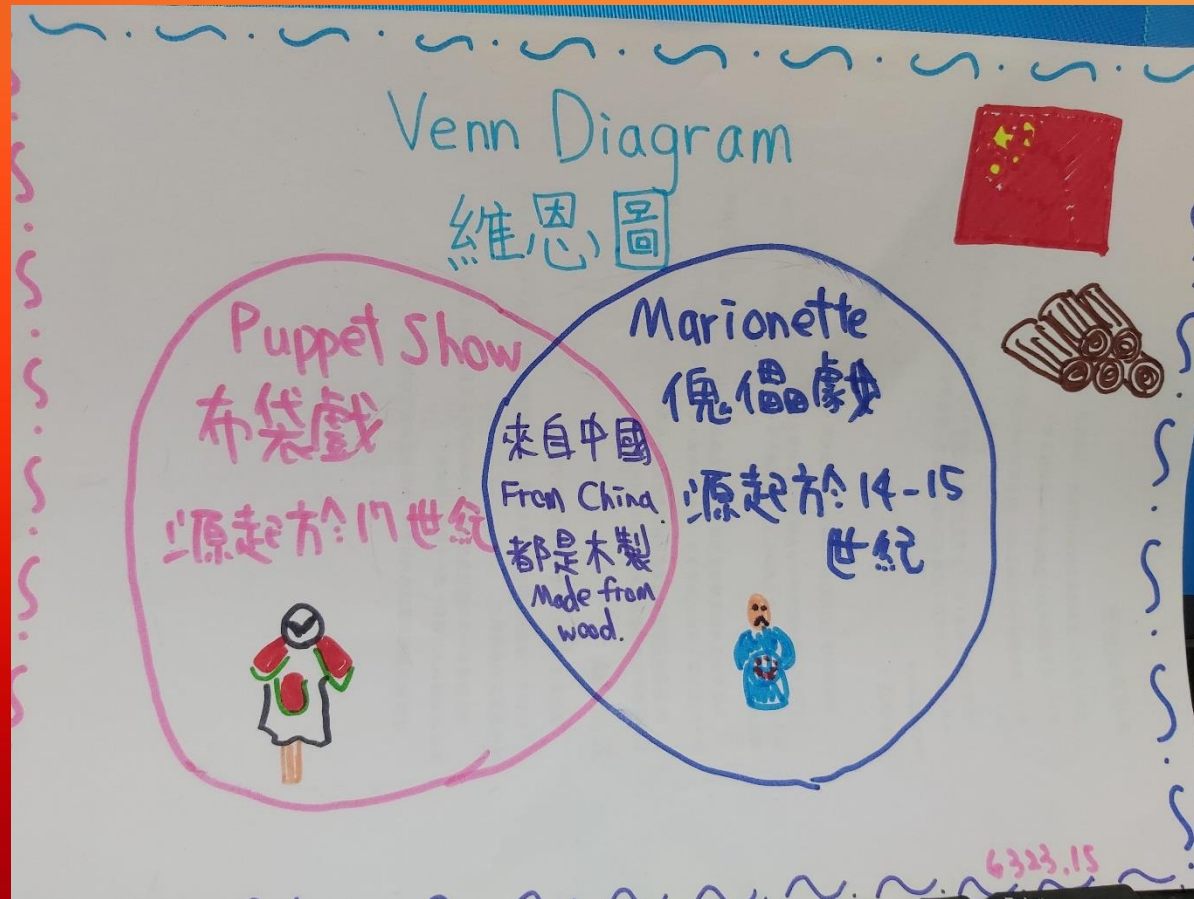 Venn Diagram
維恩圖
Puppet Show
布袋戲
源起於17世紀
來自中國
From China.
都是木製
Made from
wood.
Marionette
傀儡戲
源起於14-15
世紀